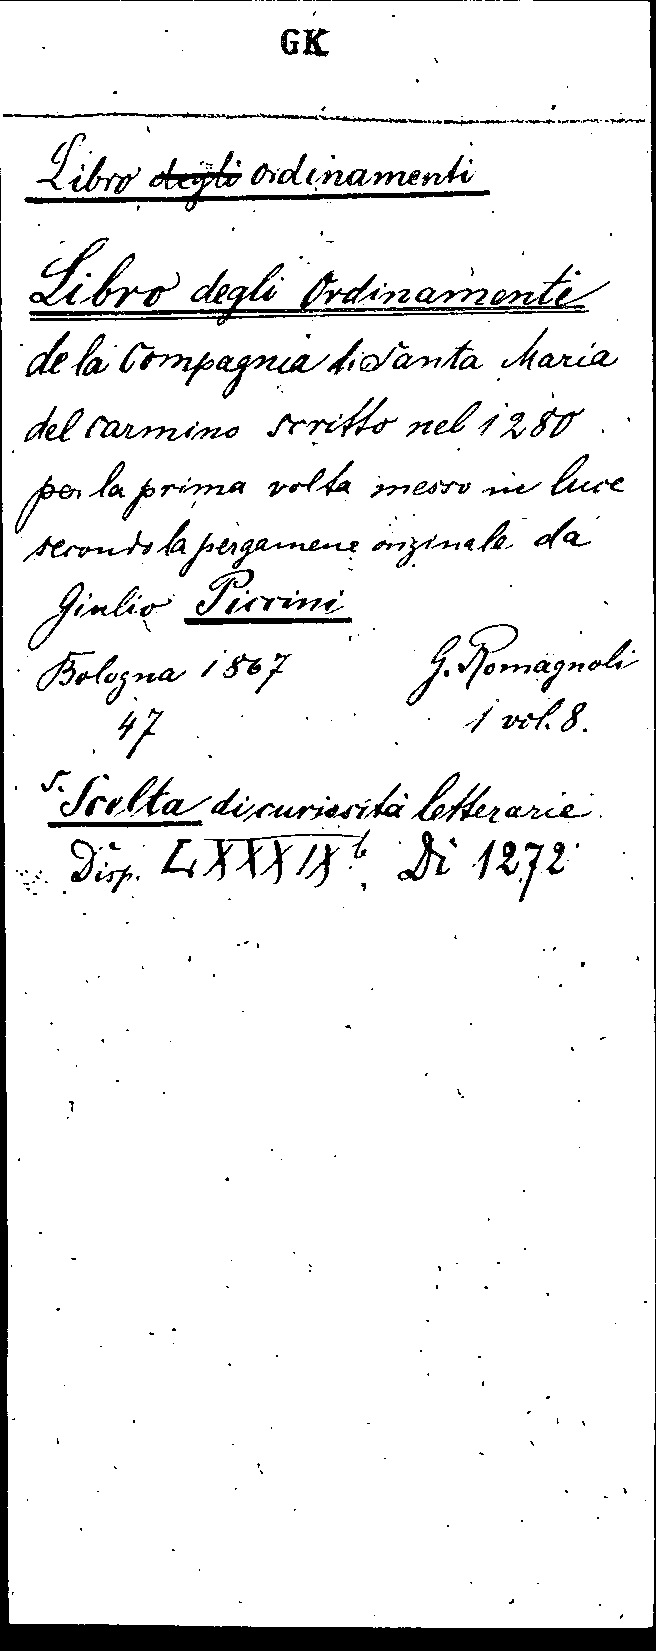 GK
Libro degli ordinamenti
Libro degli Ordinamenti
de la Compagnia di Santa Maria
del Carmino scritto nel 1280
per la prima volta messo in luce
secondo la pergamene originale da
Giulio Piccini
Bologna 1867 G. Romagnoli
47 1 vol. 8.
S. Scelta di curiosità letterarie
Disp. LXXXIX b. Di 1272